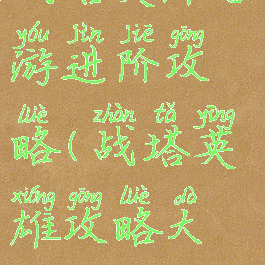 yóu jìn jiē gōng
游进阶攻
lüè zhàn tǎ yīng
略(战塔英
xióng gōng lüè dà
雄攻略大